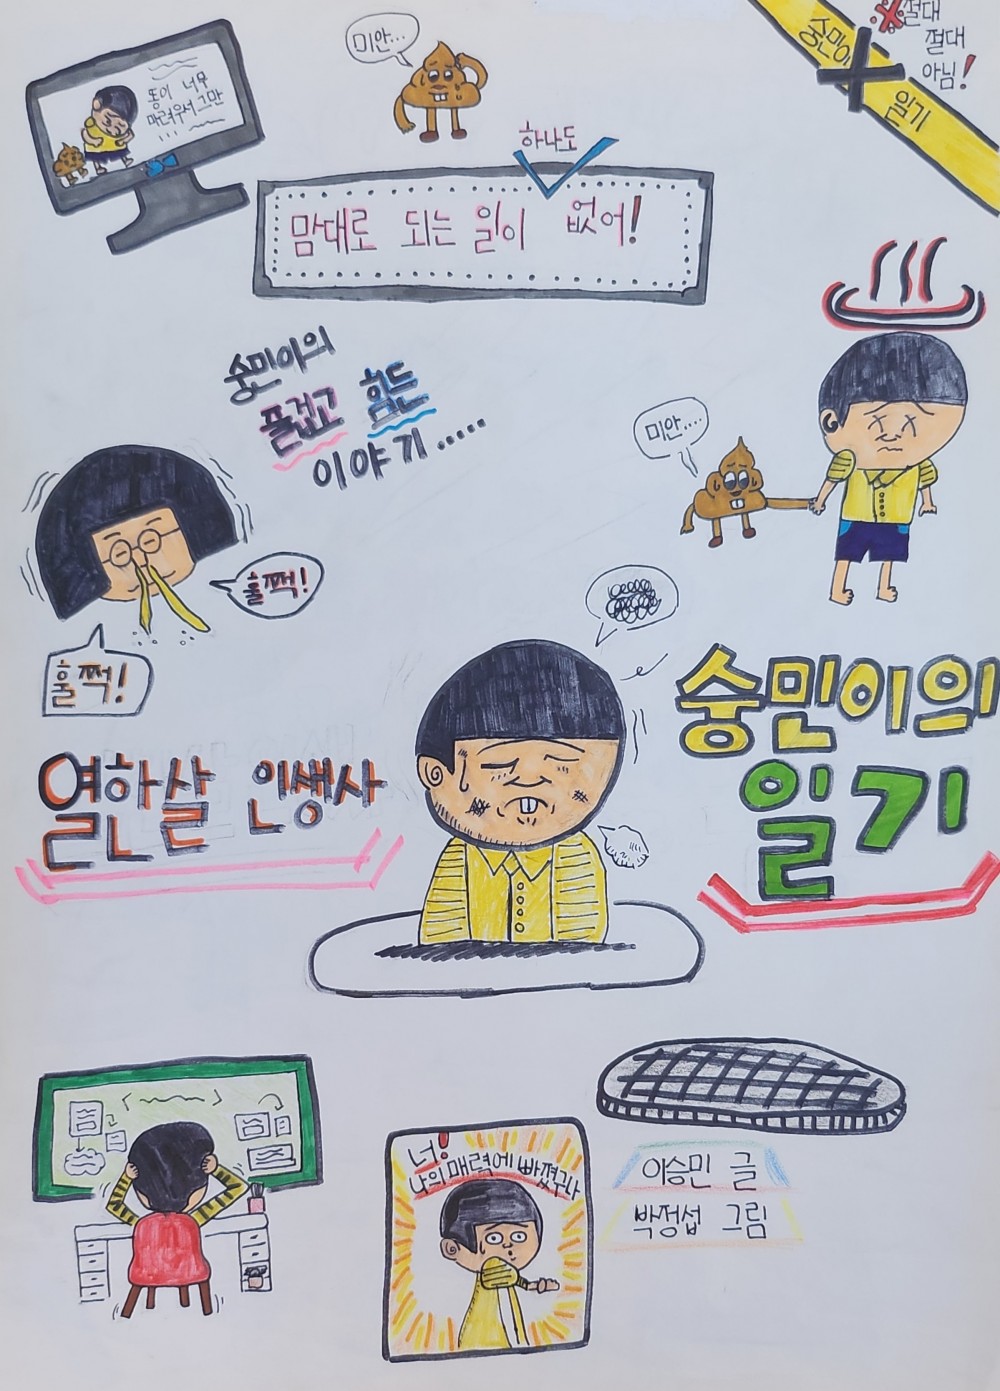 미안...
똥이 너무
마려우서 그만
...
숭민이
일기
※절대
절대
아님!
하나도
맘대로 되는 일이 없어!
숭민이의
즐겁고 힘든
이야기.....
미안....
훌쩍!
훌쩍!
숭민이의
일기
열한살 인생사
너!
나의 매력에 빠졌구나
이승민 글
박정섭 그림